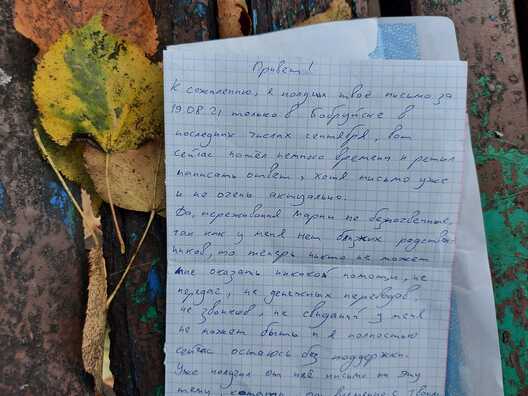 Привет!
К сожалению, я получил твоё письмо за
19.08.21 только в Бобруйске в
последних числах сентября, вот
сейчас нашёл немного времени и решил
написать ответ, хотя письмо уже
и не очень актуально.
Да, переживания Марии не безпочвенные,
так как у меня нет близких родствен-
ников, то теперь никто не может
мне оказать никакой помощи, не
передач, не денежных переводов,
не звонков, не свиданий у меня
не может быть и я полностью
сейчас остаюсь без поддержки.
Уже получил от неё письмо на эту
тему, по с твоим